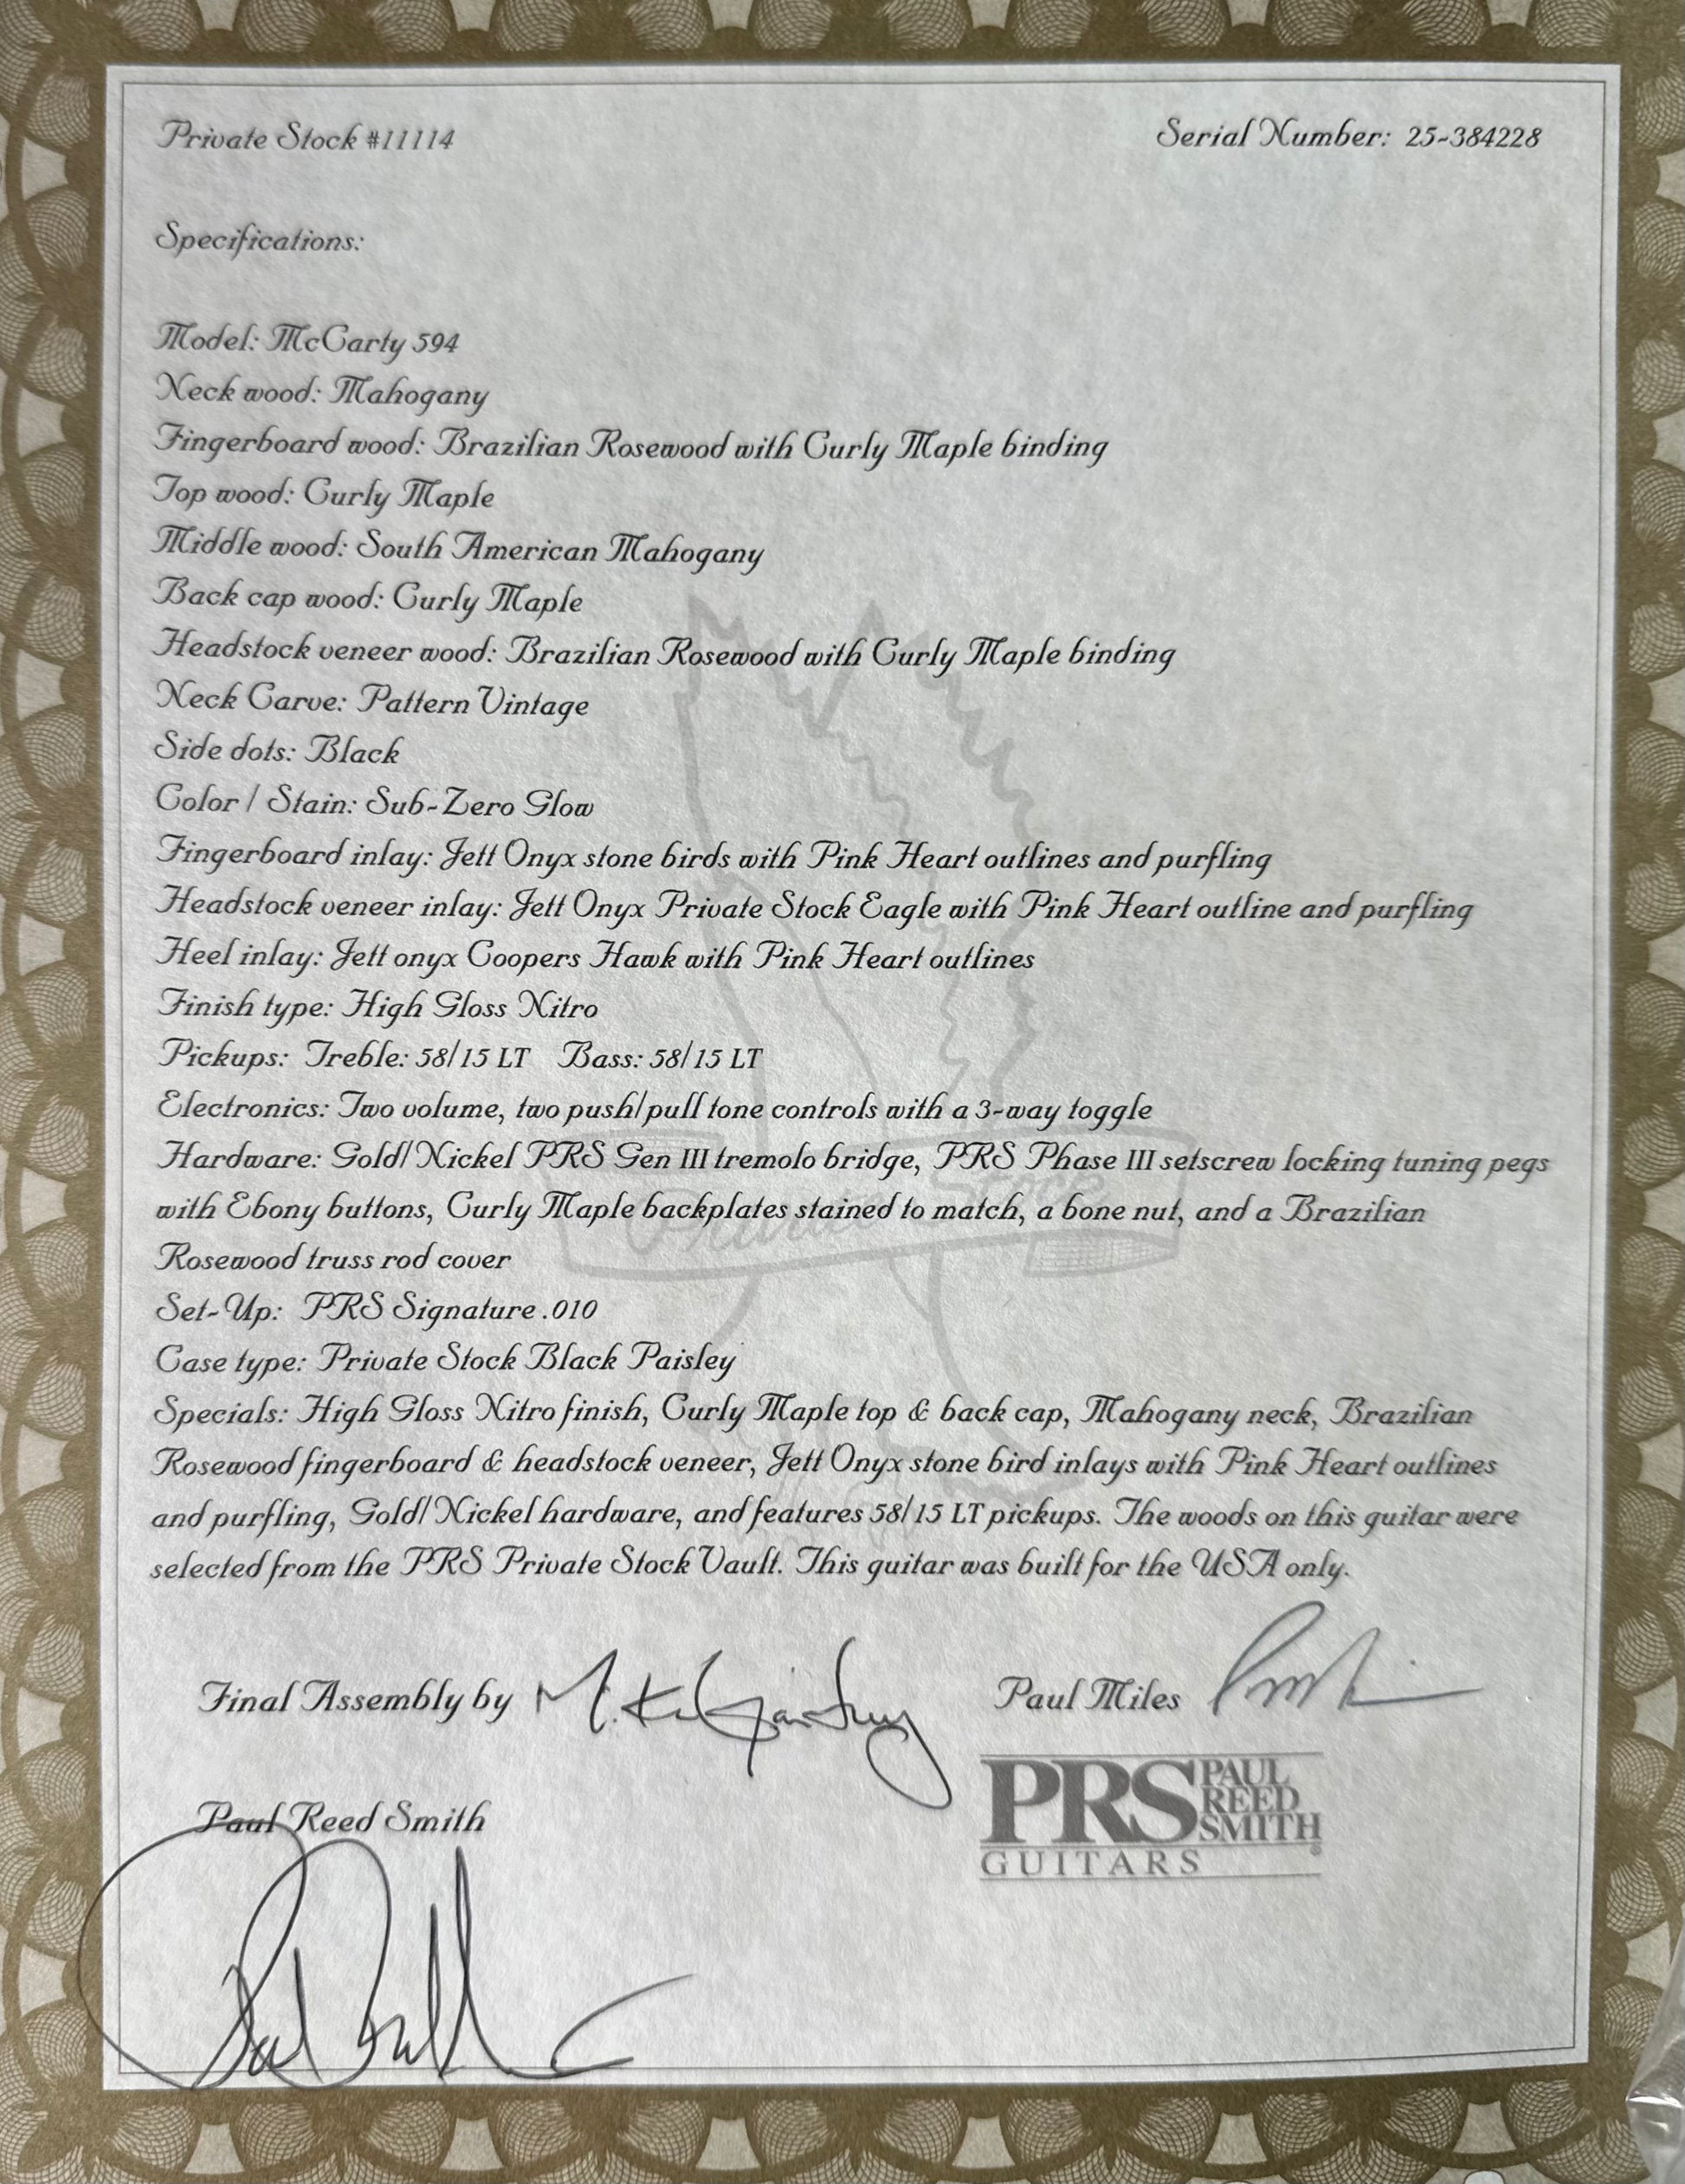 Private Stock #11114
Serial Number: 25-384228
Specifications:
Model: McCarty 594
Neck wood: Mahogany
Fingerboard wood: Brazilian Rosewood with Curly Maple binding
Top wood: Curly Maple
Middle wood: South American Mahogany
Back cap wood: Curly Maple
Headstock veneer wood: Brazilian Rosewood with Curly Maple binding
Neck Carve: Pattern Vintage
Side dots: Black
Color / Stain: Sub-Zero Glow
Fingerboard inlay: Jett Onyx stone birds with Pink Heart outlines and purfling
Headstock veneer inlay: Jett Onyx Private Stock Eagle with Pink Heart outline and purfling
Heel inlay: Jett onyx Coopers Hawk with Pink Heart outlines
Finish type: High Gloss Nitro
Pickups: Treble: 58/15 LT Bass: 58/15 LT
Electronics: Two volume, two push/pull tone controls with a 3-way toggle
Hardware: Gold/Nickel PRS Gen III tremolo bridge, PRS Phase III setscrew locking tuning pegs
with Ebony buttons, Curly Maple backplates stained to match, a bone nut, and a Brazilian
Rosewood truss rod cover
Set-Up: PRS Signature .010
Case type: Private Stock Black Paisley
Specials: High Gloss Nitro finish, Curly Maple top & back cap, Mahogany neck, Brazilian
Rosewood fingerboard & headstock veneer, Jett Onyx stone bird inlays with Pink Heart outlines
and purfling, Gold/Nickel hardware, and features 58/15 LT pickups. The woods on this guitar were
selected from the PRS Private Stock Vault. This guitar was built for the USA only.
Final Assembly by
Paul Miles
Paul Reed Smith
PRS PAUL REED SMITH
GUITARS
Private Stock